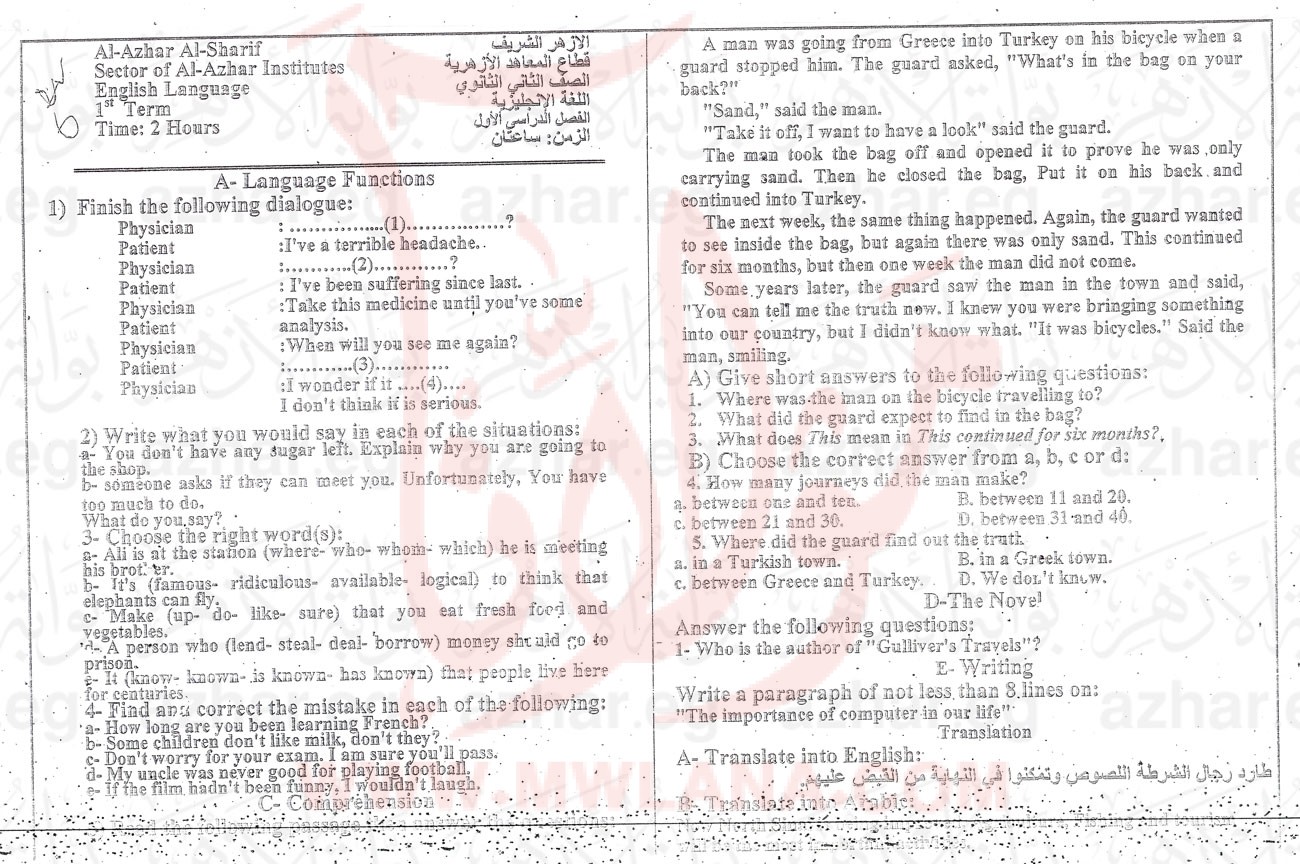 Al-Azhar Al-Sharif
Sector of Al-Azhar Institutes
English Language
1st Term
Time: 2 Hours
الأزهر الشريف
قطاع المعاهد الأزهرية
الصف الثاني الثانوي
اللغة الإنجليزية
الفصل الدراسي الأول
الزمن: ساعتان
A- Language Functions
1) Finish the following dialogue:
Physician :.................(1)..................?
Patient :I've a terrible headache.
Physician :............(2)............?
Patient : I've been suffering since last.
Physician :Take this medicine until you've some
Patient analysis.
Physician :When will you see me again?
Patient :............(3).............
Physician :I wonder if it ....(4)....
I don't think it is serious.
2) Write what you would say in each of the situations:
a- You don't have any sugar left. Explain why you are going to
the shop.
b- someone asks if they can meet you. Unfortunately, You have
too much to do.
What do you say?
3- Choose the right word(s):
a- Ali is at the station (where- who- whom- which) he is meeting
his brother.
b- It's (famous- ridiculous- available- logical) to think that
elephants can fly.
c- Make (up- do- like- sure) that you eat fresh food and
vegetables.
d- A person who (lend- steal- deal- borrow) money should go to
prison.
e- It (know- known- is known- has known) that people live here
for centuries.
4- Find and correct the mistake in each of the following:
a- How long are you been learning French?
b- Some children don't like milk, don't they?
c- Don't worry for your exam. I am sure you'll pass.
d- My uncle was never good for playing football.
e- If the film hadn't been funny, I wouldn't laugh.
C- Comprehension
Read the following passage answer the questions:
A man was going from Greece into Turkey on his bicycle when a
guard stopped him. The guard asked, "What's in the bag on your
back?"
"Sand," said the man.
"Take it off, I want to have a look" said the guard.
The man took the bag off and opened it to prove he was only
carrying sand. Then he closed the bag, Put it on his back and
continued into Turkey.
The next week, the same thing happened. Again, the guard wanted
to see inside the bag, but again there was only sand. This continued
for six months, but then one week the man did not come.
Some years later, the guard saw the man in the town and said,
"You can tell me the truth now. I knew you were bringing something
into our country, but I didn't know what. "It was bicycles." Said the
man, smiling.
A) Give short answers to the following questions:
1. Where was the man on the bicycle travelling to?
2. What did the guard expect to find in the bag?
3. What does This mean in This continued for six months?
B) Choose the correct answer from a, b, c or d:
4. How many journeys did the man make?
a. between one and ten. B. between 11 and 20.
c. between 21 and 30. D. between 31 and 40.
5. Where did the guard find out the truth
a. in a Turkish town. B. in a Greek town.
c. between Greece and Turkey. D. We don't know.
D-The Novel
Answer the following questions:
1- Who is the author of "Gulliver's Travels"?
E- Writing
Write a paragraph of not less than 8 lines on:
"The importance of computer in our life"
Translation
A- Translate into English:
طارد رجال الشرطة اللصوص وتمكنوا في النهاية من القبض عليهم.
B- Translate into Arabic:
WWW.MWLANA.COM
azhar.eg